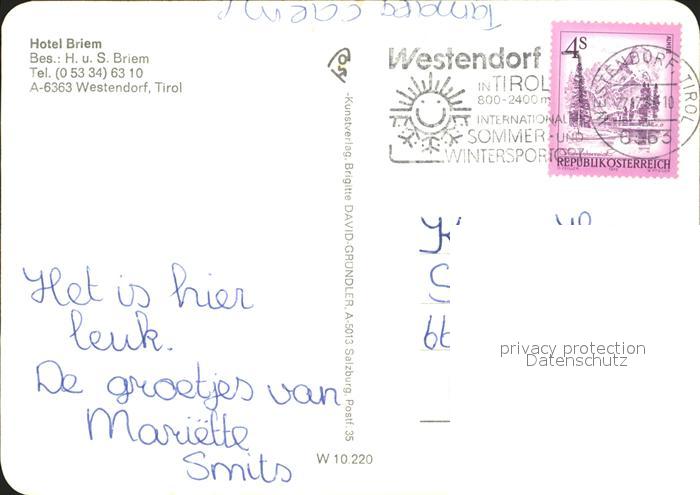 Hotel Briem
Bes.: H. u. S. Briem
Tel. (0 53 34) 63 10
A-6363 Westendorf, Tirol
-Kunstverlag, Brigitte DAVID-GRÜNDLER A-5013 Salzburg, Postf. 35
W 10.220
Westendorf
IN TIROL
800-2400m
INTERNATIONALER
SOMMER- UND
WINTERSPORTORT
4S
REPUBLIK ÖSTERREICH
WESTENDORF, TIROL
6363
Het is hier
leuk.
De groetjes van
Mariëtte
Smits
privacy protection
Datenschutz